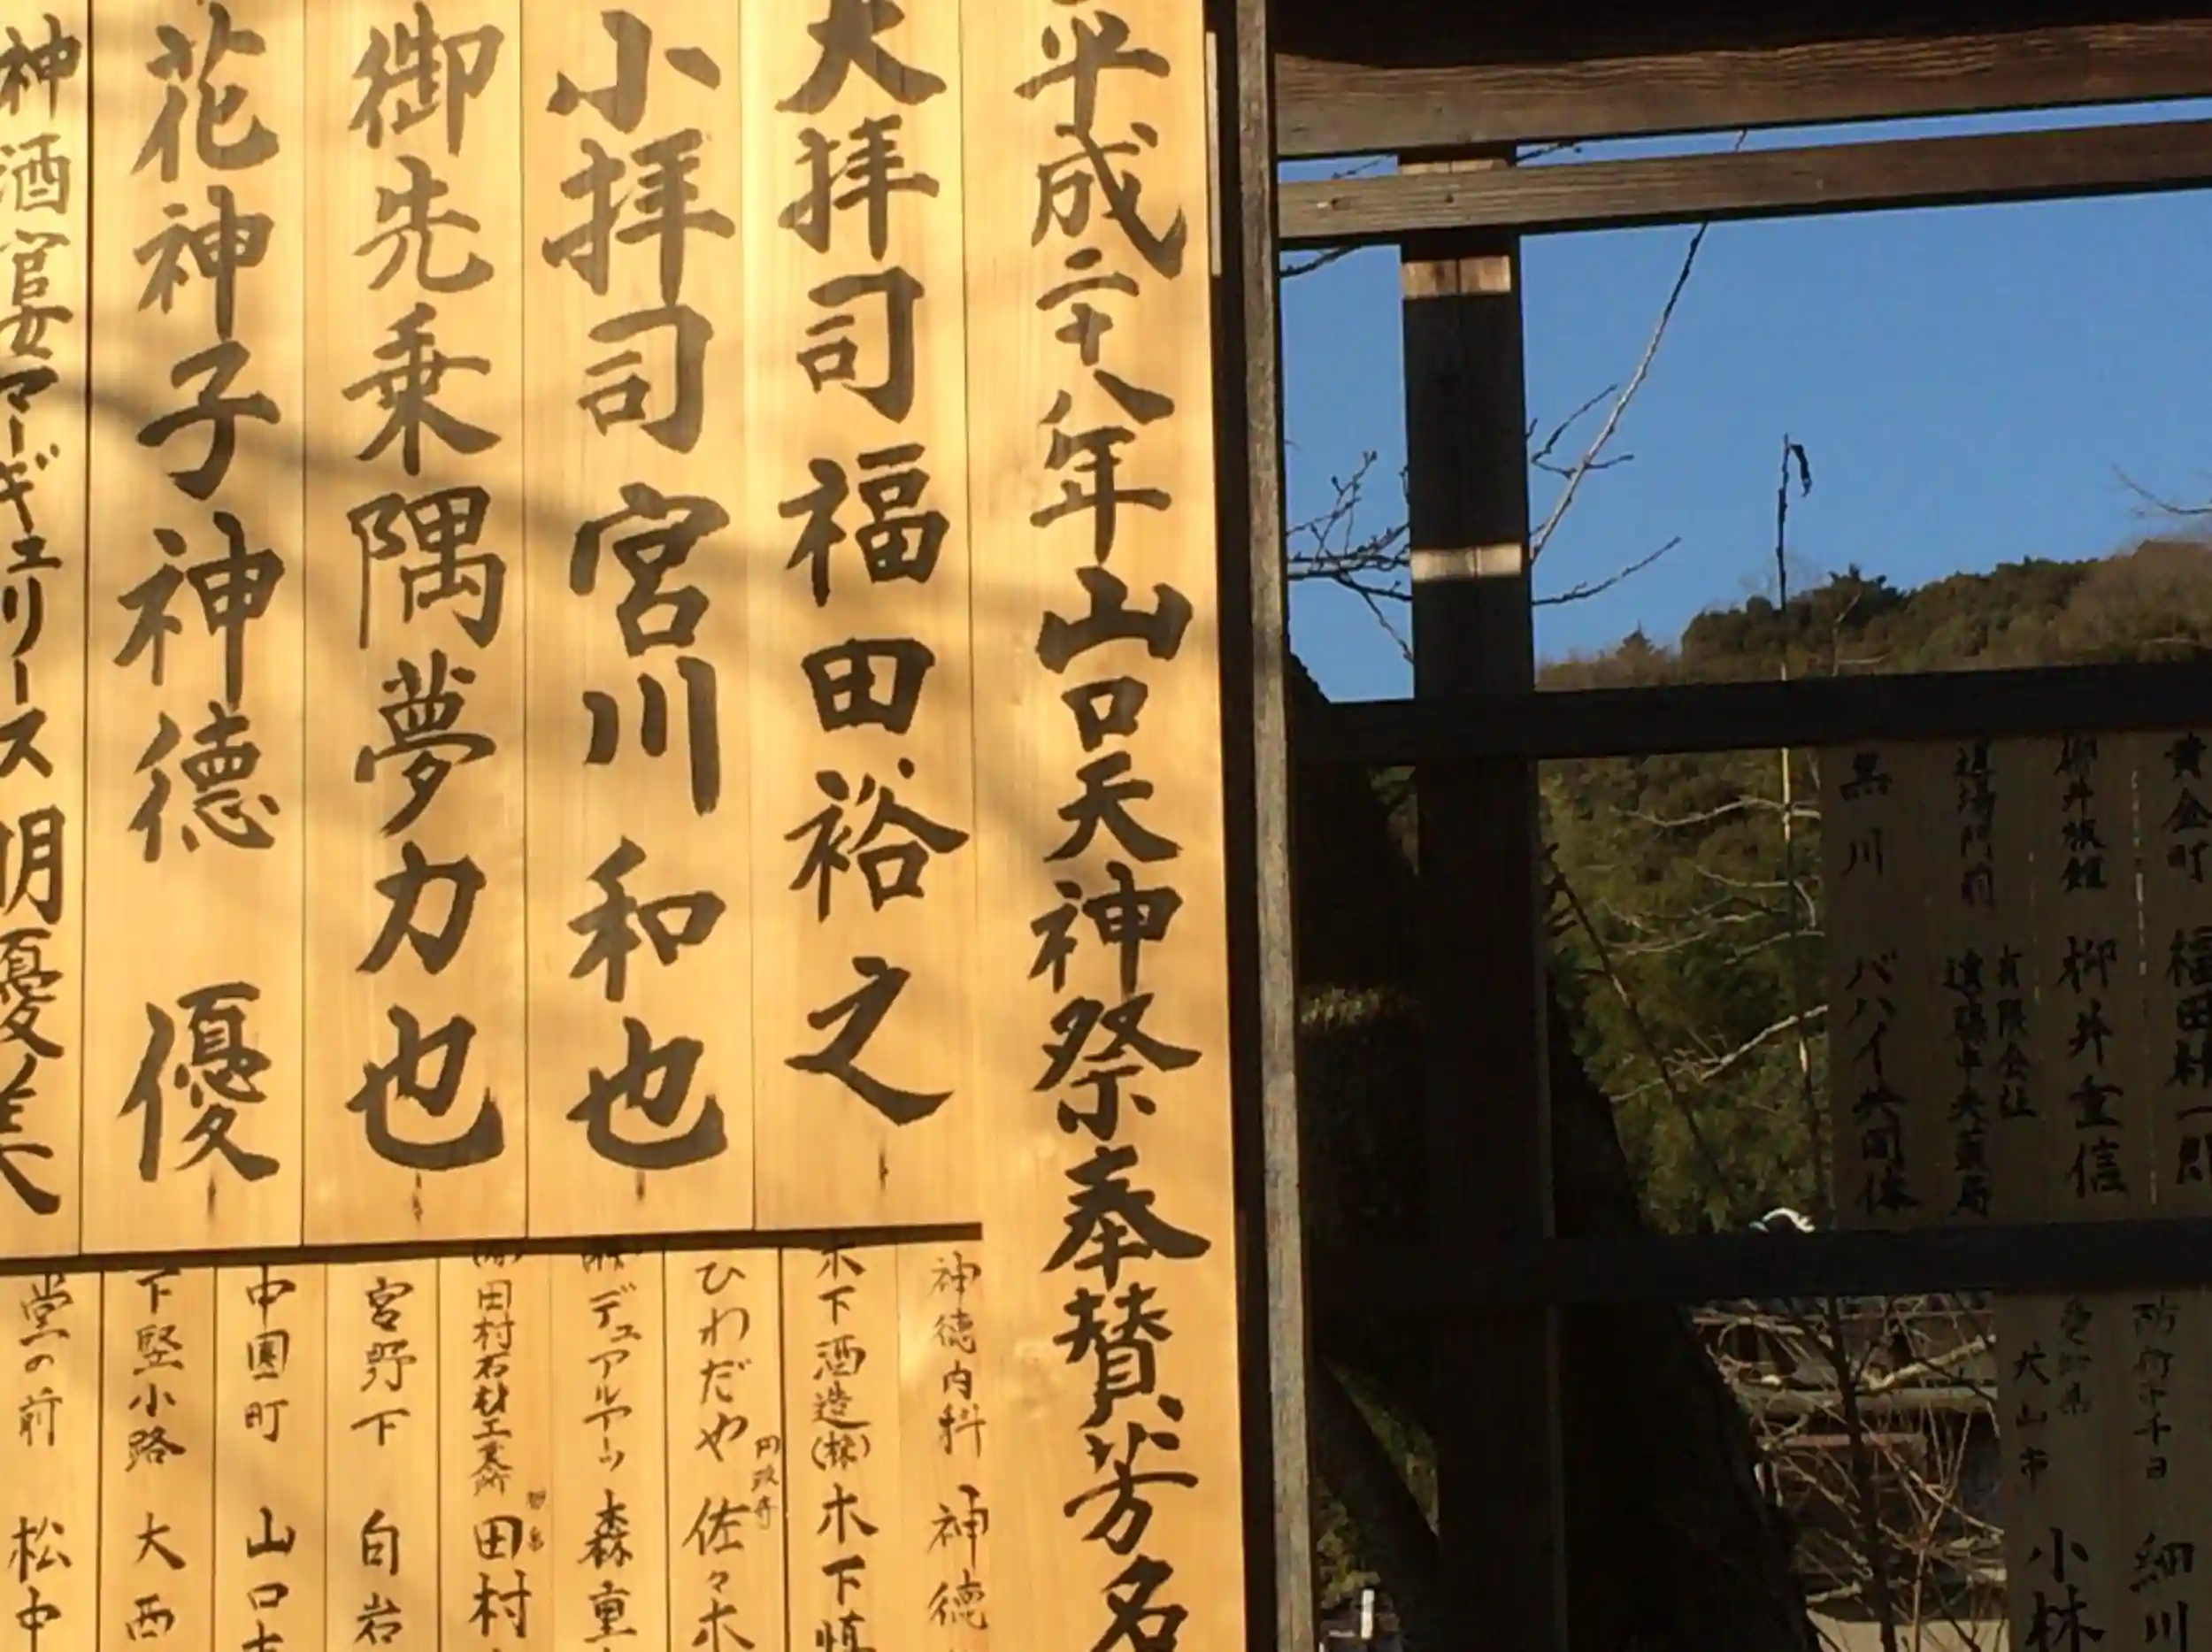 平成二十八年山口天神祭奉賛芳名
大拝司 福田裕之
小拝司 宮川和也
御先乗 隅夢力也
花神子 神徳優
神酒官女 マーギュリース明優美
神徳内科 神徳
木下酒造(株) 木下慎
ひわだや 円政寺 佐々木
(株)デュアルアーツ 森重
田村石材工業所 田村
宮野下 白岩
中園町 山口
下竪小路 大西
堂の前 松中
黄金町 福田
柳井板金 柳井重信
道場門前 有限会社
黒川 バハイ共同体
防府市千日 細川
愛知県犬山市 小林